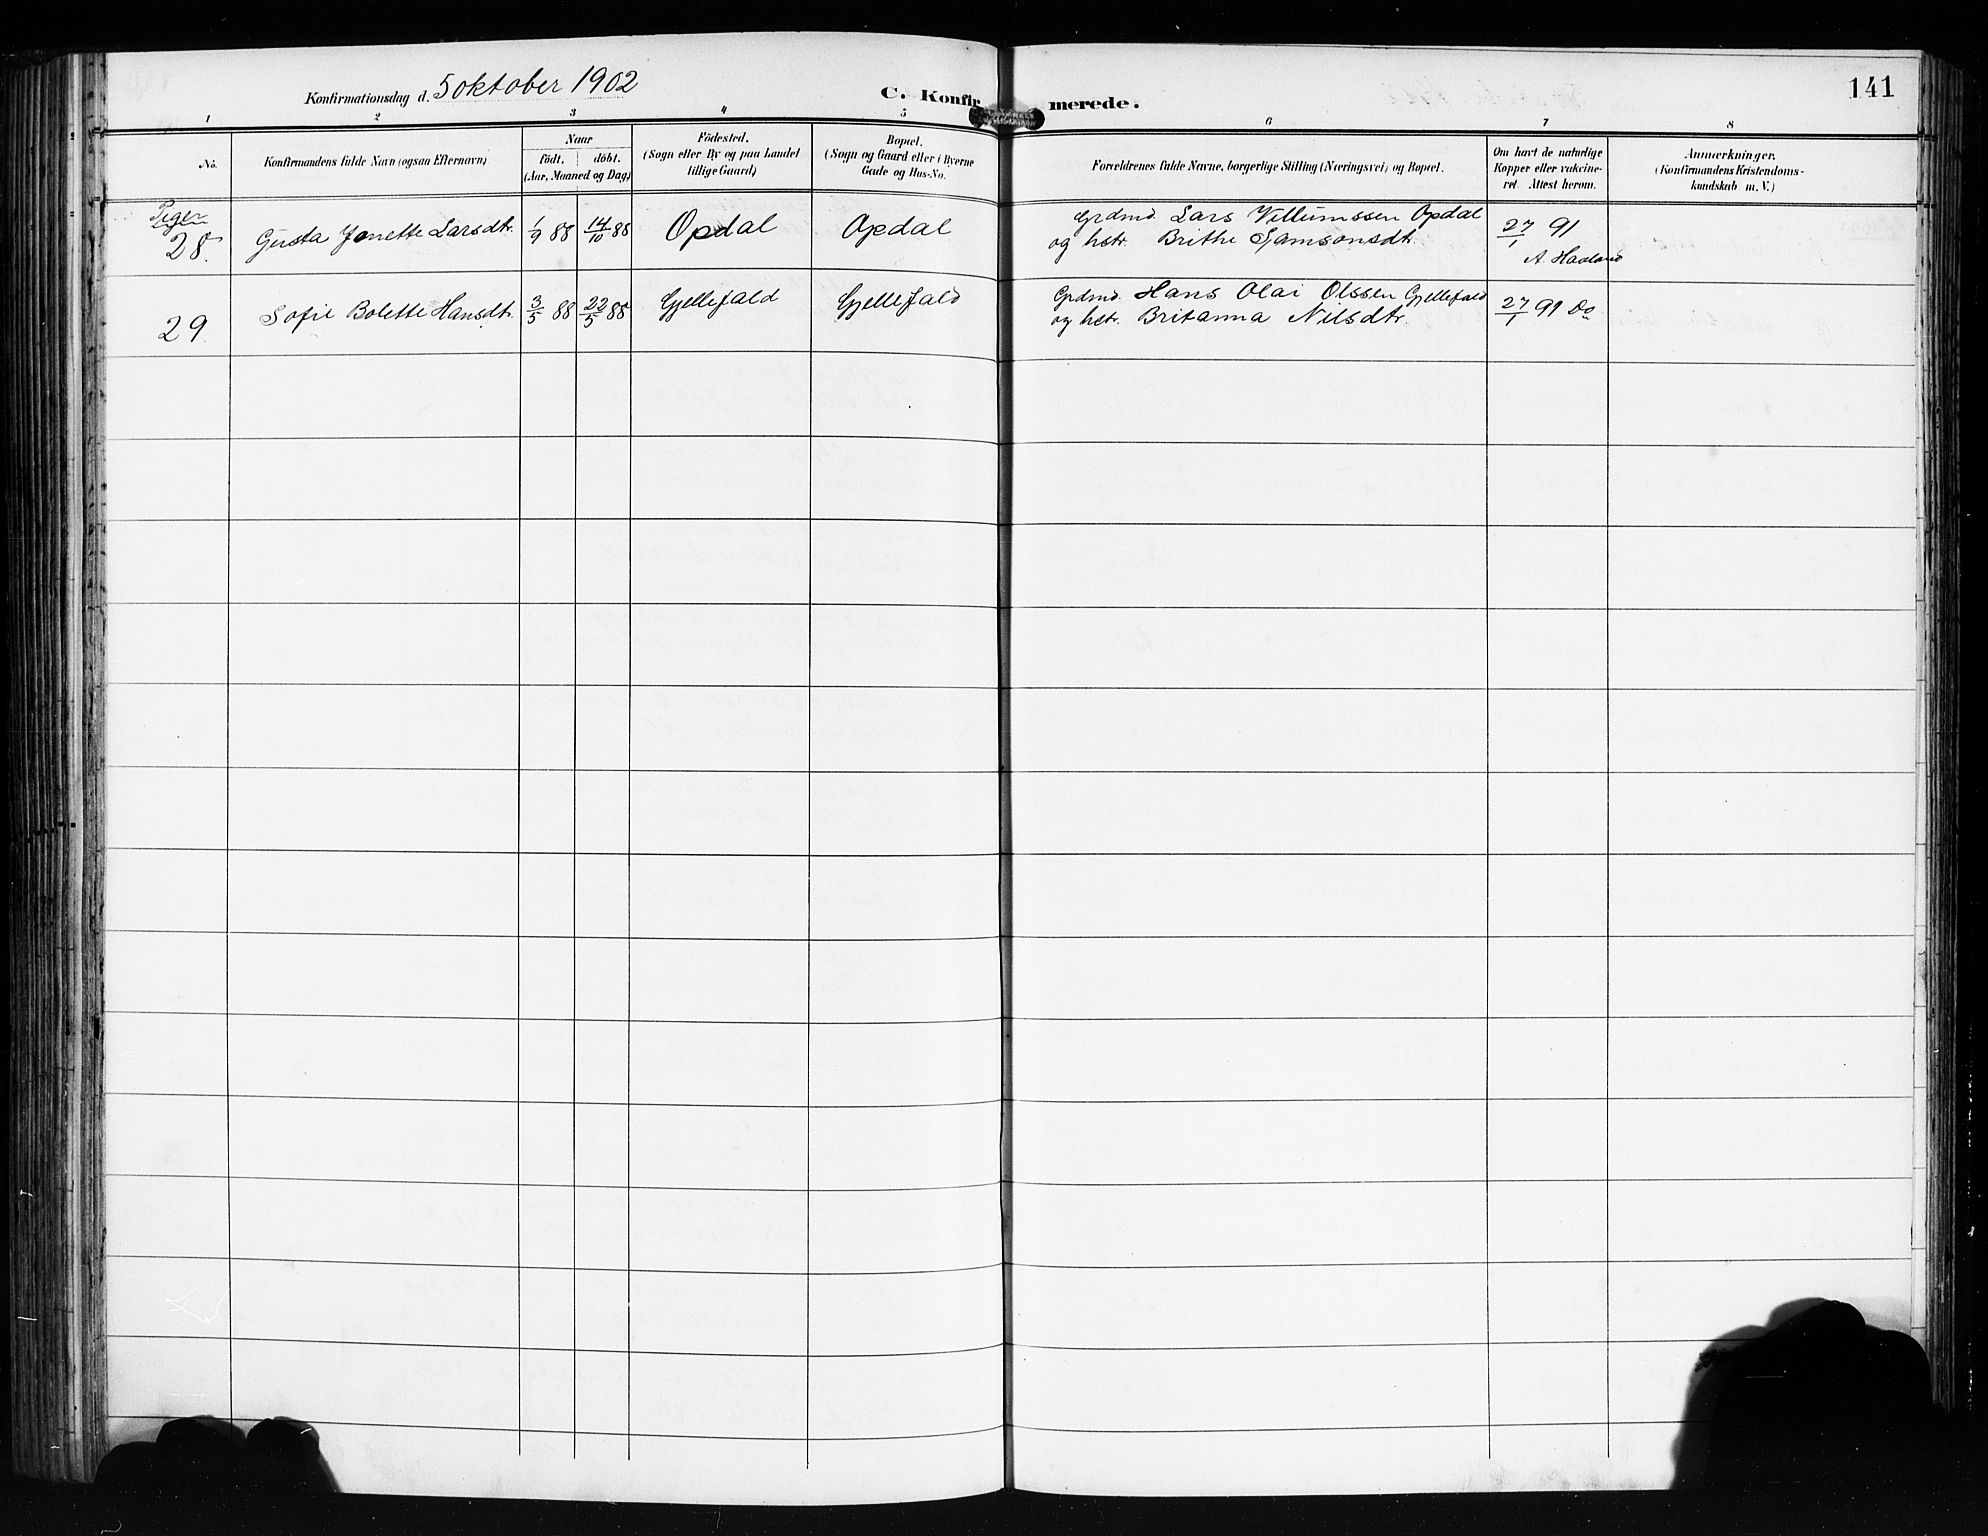 Konfirmationsdag d. 5 oktober 1902
C. Konfir merede.
141
1 2 3 4 5 6 7 8
No.
Konfirmandens fulde Navn (ogsaa Efternavn)
Naar
födt. döbt.
(Aar, Maaned og Dag)
Födested.
(Sogn eller By og paa Landet
tillige Gaard)
Bopæl.
(Sogn og Gaard eller i Byerne
Gade og Hus-No.
Forældrenes fulde Navne, borgerlige Stilling (Næringsvei) og Bopæl.
Om havt de naturlige
Kopper eller vakcine-
ret. Attest herom.
Anmærkninger.
(Konfirmandens Kristendoms-
kundskab m. V.)
Piger
28. Gusta Jonette Larsdtr. 1/9 88 14/10 88 Opdal Opdal Grdmd. Lars Villumssen Opdal
og hstr. Brithe Samsonsdtr. 27/1 91
A. Haaland
29. Sofie Bolette Hansdtr. 3/5 88 22/5 88 Gjellefald Gjellefald Grdmd. Hans Olai Olssen Gjellefald
og hstr. Britanna Nilsdtr. 27/1 91 Do